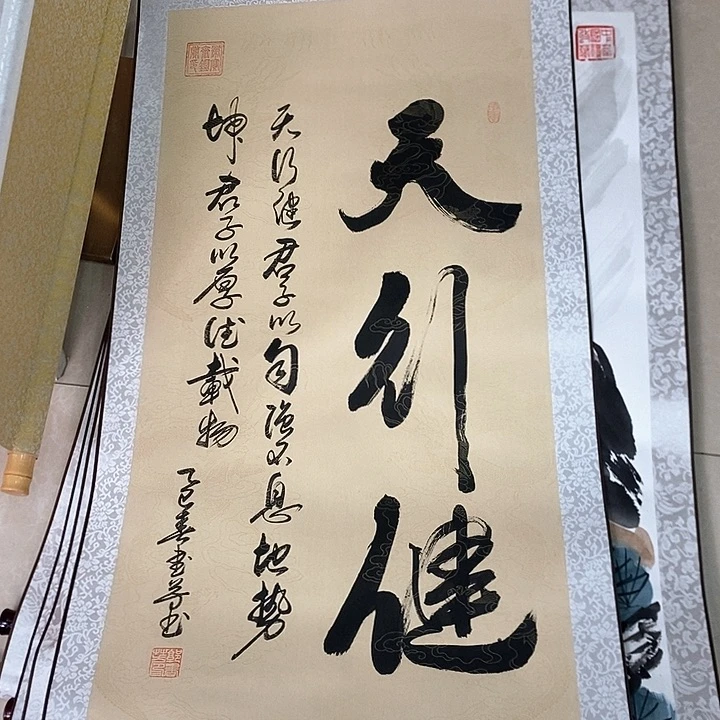 天行健
天行健君子以自强不息地势
坤君子以厚德載物
乙巳春